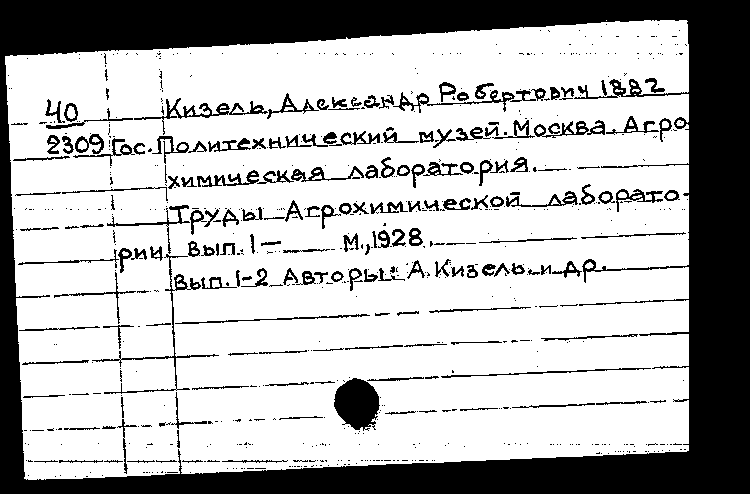 40 Кизель, Александр Робертович 1882
2309 Гос. Политехнический музей. Москва. Агро-
химическая лаборатория.
Труды Агрохимической лаборато-
рии. Вып. 1 — М., 1928.
Вып. 1-2 Авторы: А. Кизель и др.